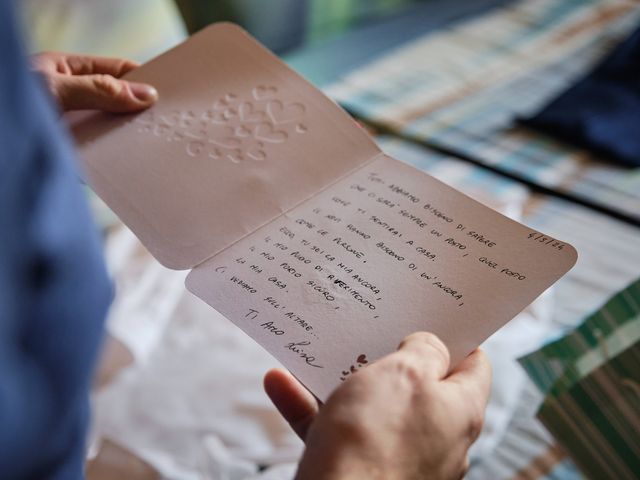 4/5/24
TUTTI ABBIAMO BISOGNO DI SAPERE
CHE CI SARÀ SEMPRE UN POSTO, QUEL POSTO
DOVE TI SENTIRAI A CASA.
LE NAVI HANNO BISOGNO DI UN'ANCORA,
COME LE PERSONE.
ECCO, TU SEI LA MIA ANCORA,
IL MIO PUNTO DI RIFERIMENTO,
IL MIO PORTO SICURO,
LA MIA CASA.
CI VEDIAMO SULL'ALTARE...
TI AMO
Luisa